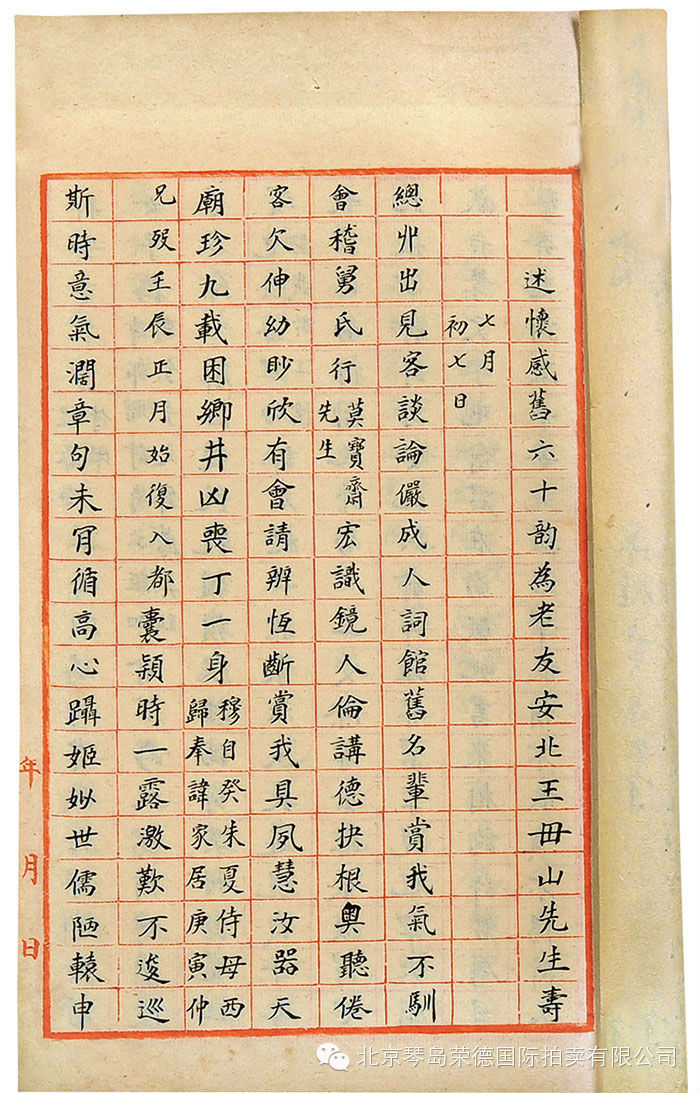 述懷感舊六十韵為老友安北王毌山先生壽
七月
初七日
總丱出見客談論儼成人詞館舊名輩賞我氣不馴
會稽舅氏行莫寶齋先生宏識鏡人倫講德抉根奥聽倦
客欠伸幼眇欣有會請辨恆齗賞我具夙慧汝器天
廟珍九載困卿井凶喪丁一身穆自癸朱夏侍母西歸奉諱家居庚寅仲
兄歿壬辰正月始復入都囊穎時一露激歎不逡巡
斯時意氣濶章句未肎循高心躡姬姒世儒陋轅申
年 月 日
北京琴岛荣德国际拍卖有限公司